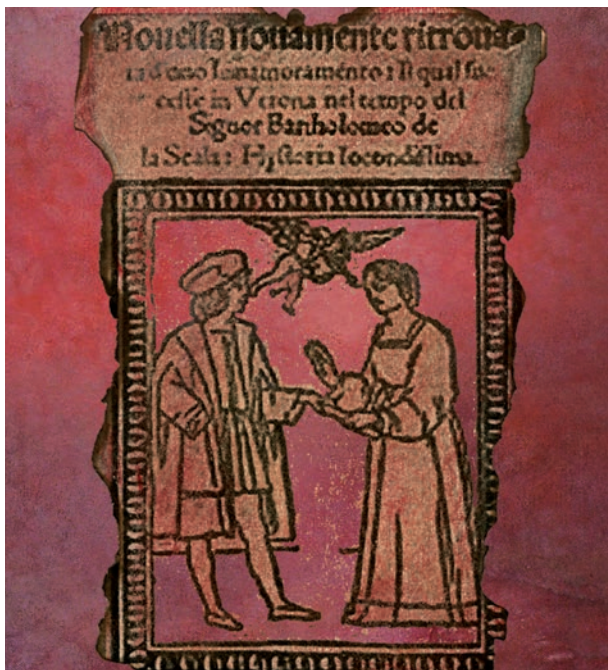 Nouella nouamente ritroua-
ta d'uno Innamoramento: Il qual suc
cesse in Verona nel tempo del
Signor Bartholomeo de
la Scala: Hystoria Iocondissima.